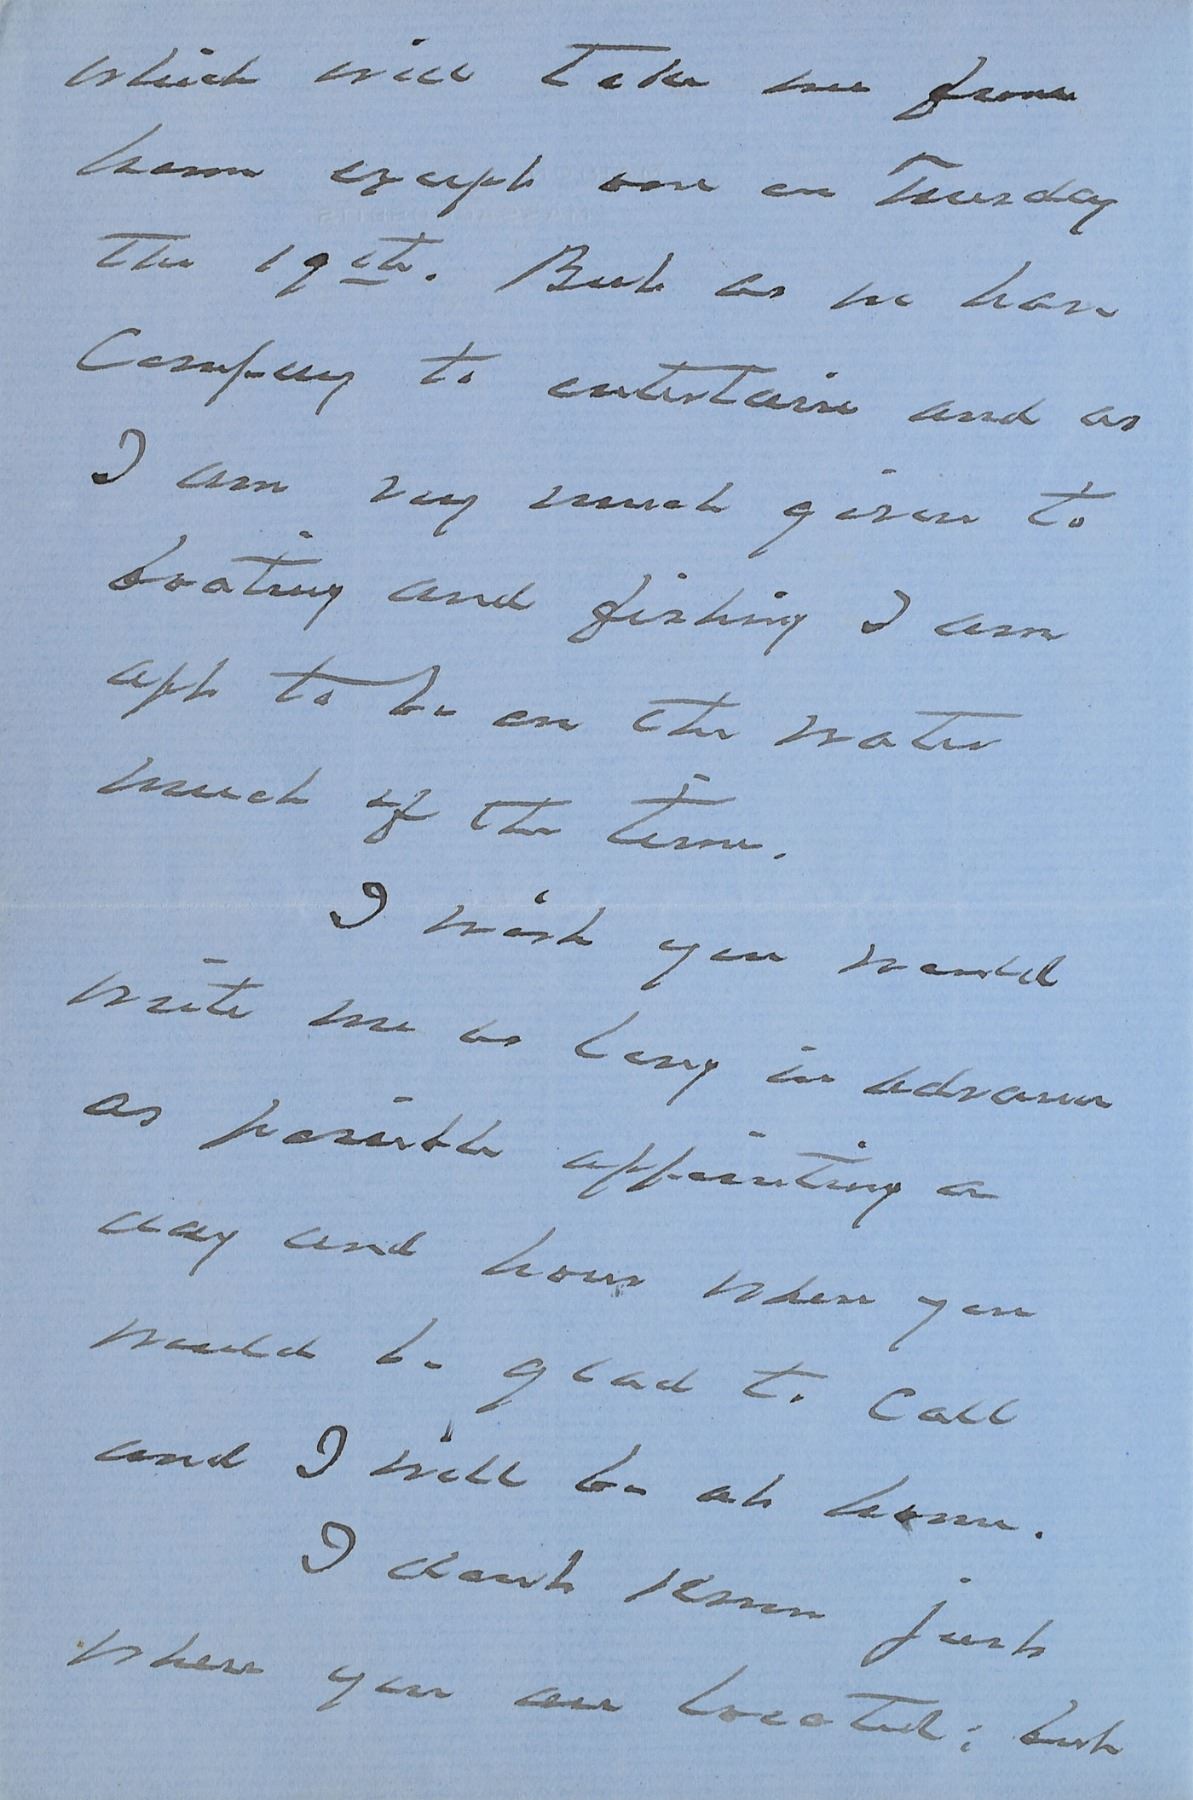 which will take me from
home except one on Tuesday
the 19th. But as we have
Company to entertain and as
I am very much given to
boating and fishing I am
apt to be on the water
much of the time.
I wish you would
write me as long in advance
as possible appointing a
day and hour when you
would be glad to call
and I will be at home.
I don't know just
where you are located; but